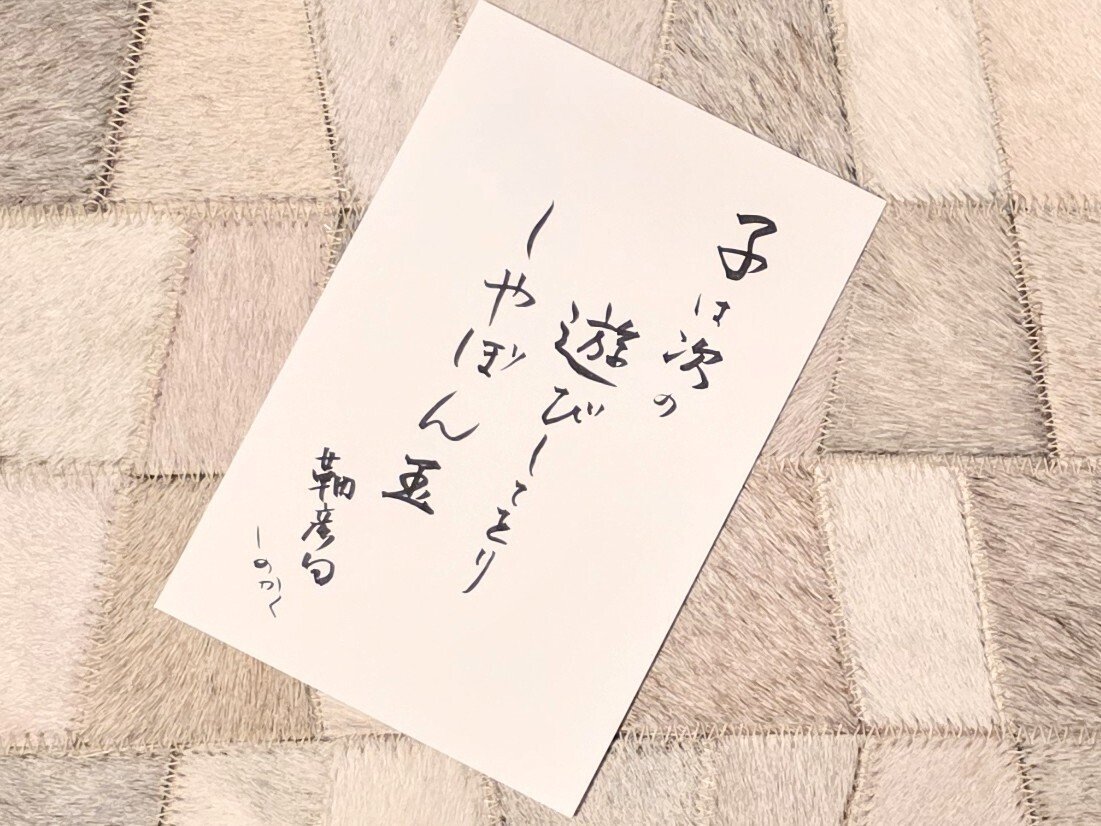 子は次の
遊びしてをり
しやぼん玉
靫彦句
しのかく